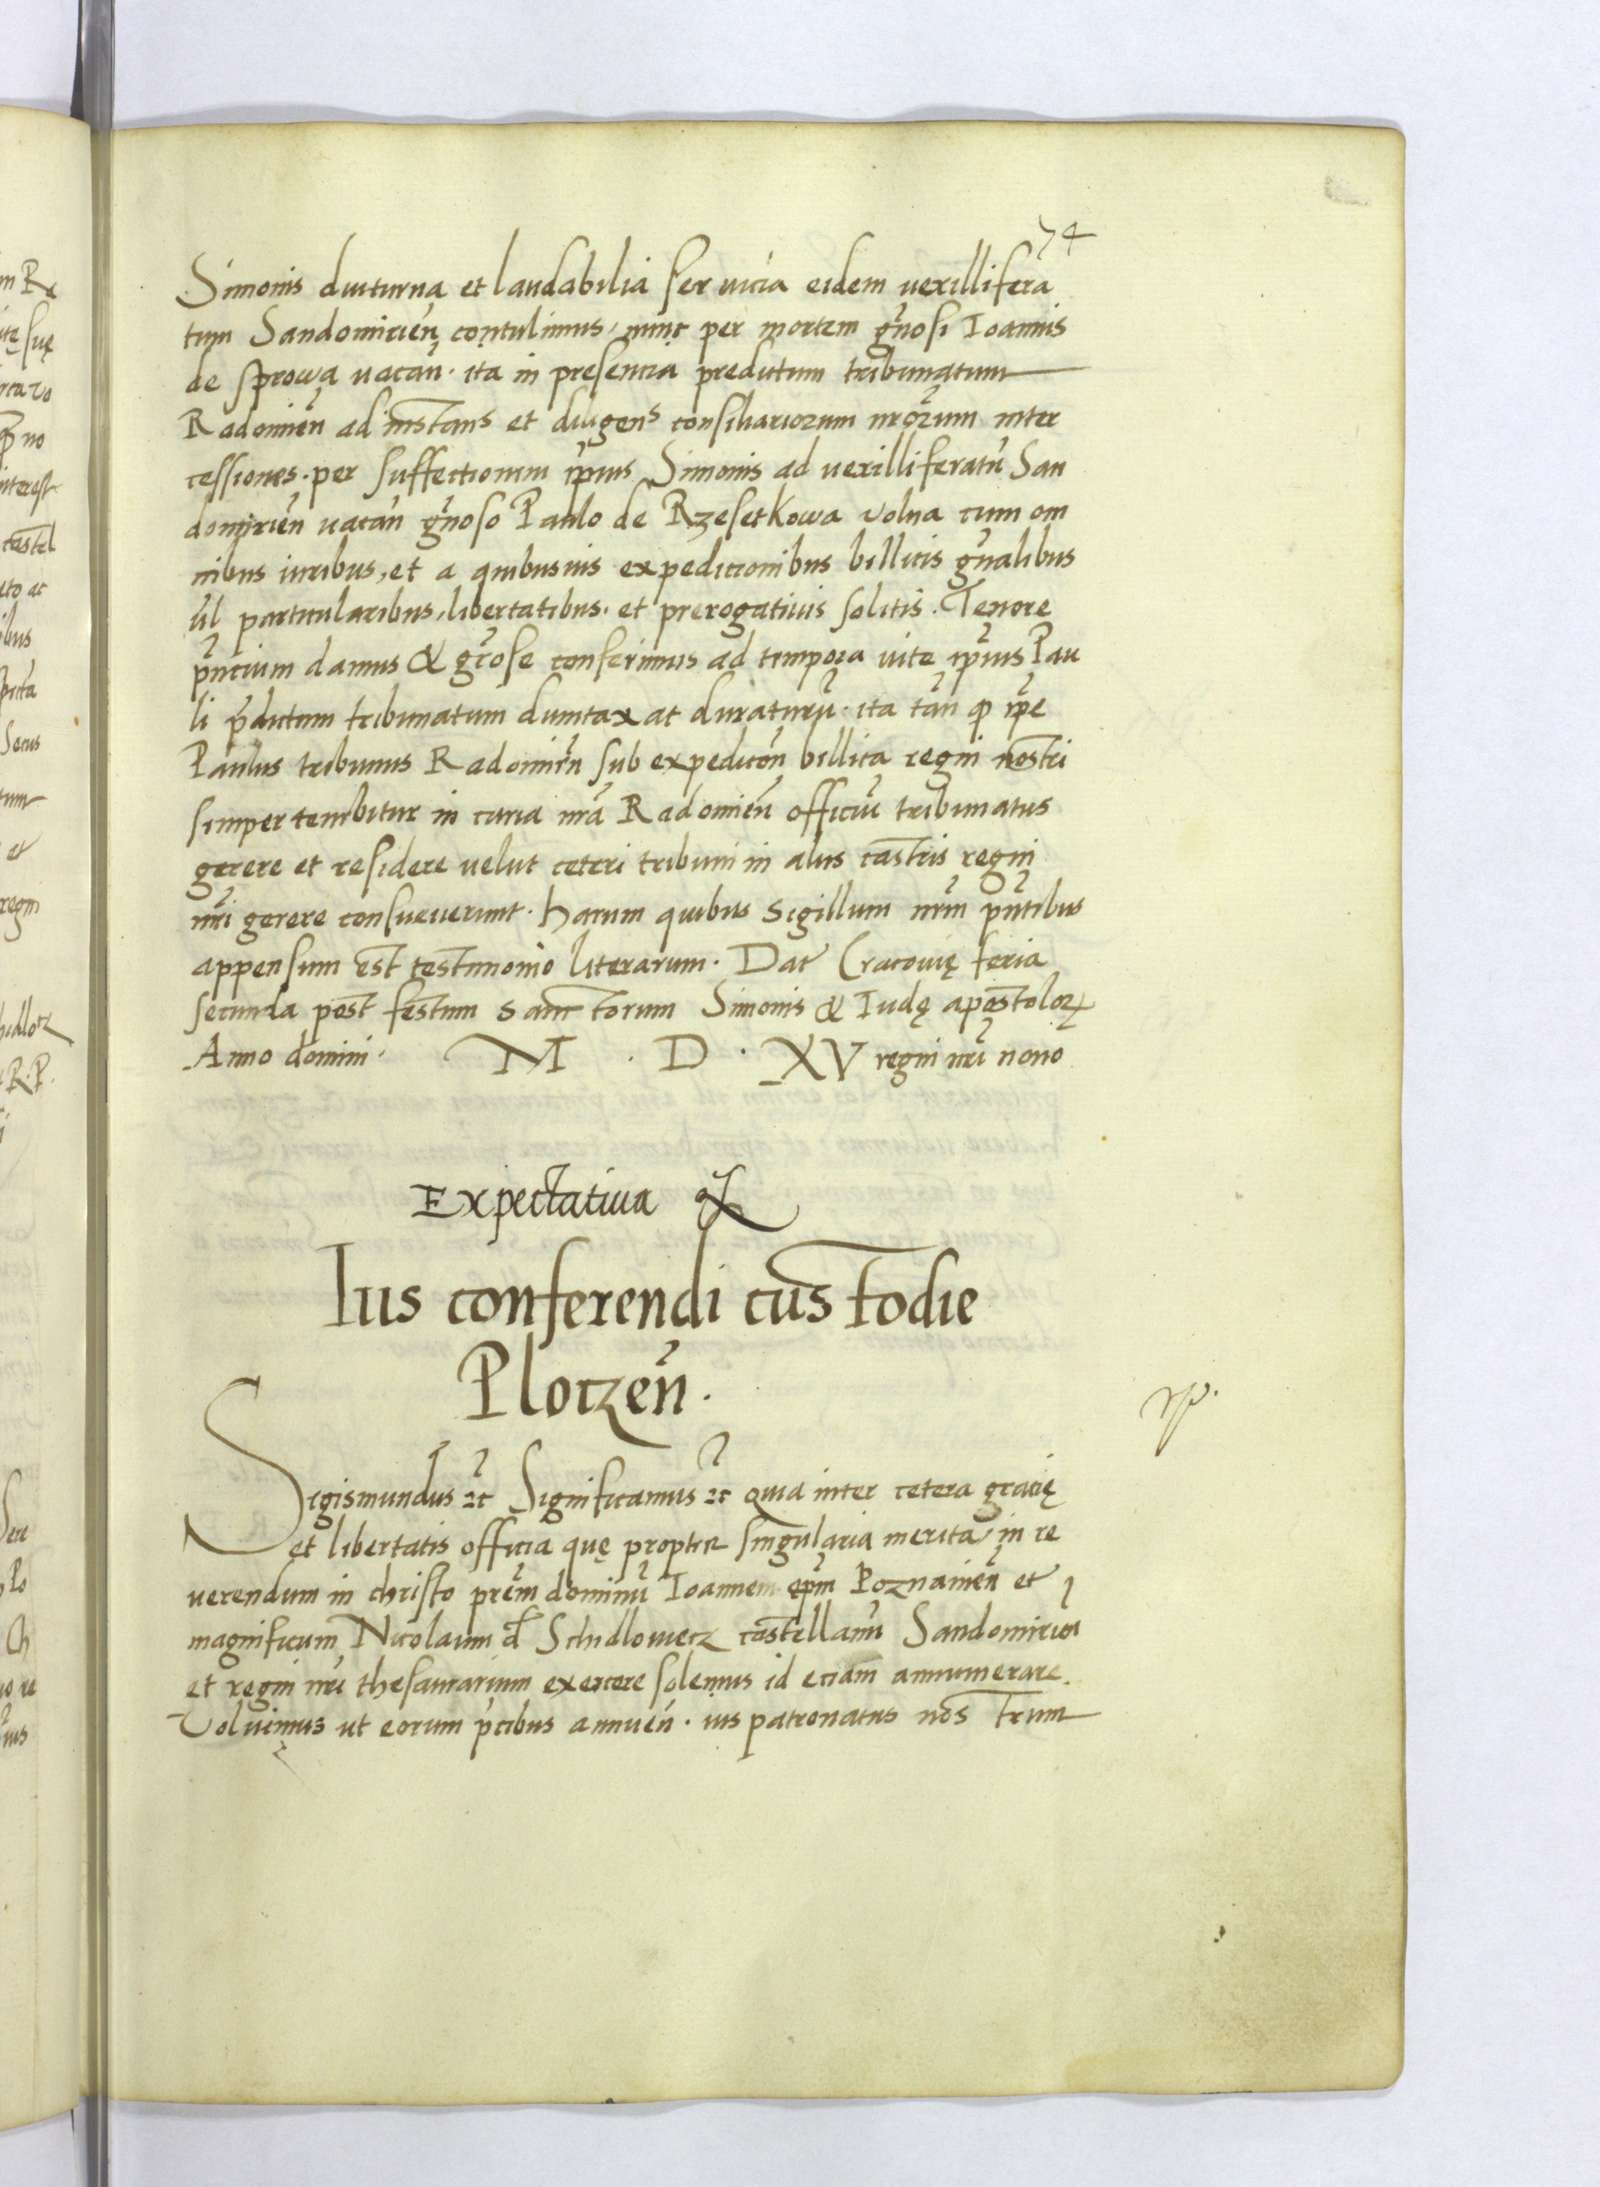 74
Simonis diuturna et laudabilia seruicia eidem uexillifera
tum Sandomirien̄ contulimus, nunc per mortem gn̄osi Ioannis
de sprowa uacan̄. ita in presencia predictum tribunatum
Radomien̄ ad instans et diligens consiliariorum nrōrum inter
cessiones. per suffectionem ip̄ius Simonis ad uexilliferatū San
domirien̄ uacan̄ gn̄oso Paulo de Rzesetkowa volna cum om
nibus iuribus, et a quibusuis expedicionibus bellicis gn̄alibus
ūl particularibus, libertatibus. et prerogatiuis solitis. Tenore
pn̄cium damus & gr̄ose conferimus ad tempora uite ip̄ius Pau
li p̄dictum tribunatum dumtaxat duraturū. ita tan̄ ꝙ ip̄e
Paulus tribunus Radomien̄ sub expedicōn bellica regni nostri
semper tenebitur in curia nr̄a Radomien̄ officiū tribunatus
gerere et residere velut ceteri tribuni in aliis castris regni
nr̄i gerere consueuerunt. harum quibus sigillum nrm̄ pn̄tibus
appensum est testimonio literarum. Dat Cracouię feria
secunda post festum sanctorum Simonis & Iudę apostoloꝝ
Anno domini. M . D . XV regni nr̄i nono
Expectatiua &
Ius conferendi custodie
Plotzen̄.
rp.
Sigismundus ꝛc̄ Significamus ꝛc̄ quia inter cetera gracię
et libertatis officia quę propter singularia merita in re
uerendum in christo prēm dominū Ioannem ep̄m Poznanien̄ et
magnificum Nicolaum d Schidlowecz castellanū Sandomirien
et regni nr̄i thesaurarium exercere solemus id eciam annumerare
Voluimus ut eorum p̄cibus annuen̄. ius patronatus nostrum